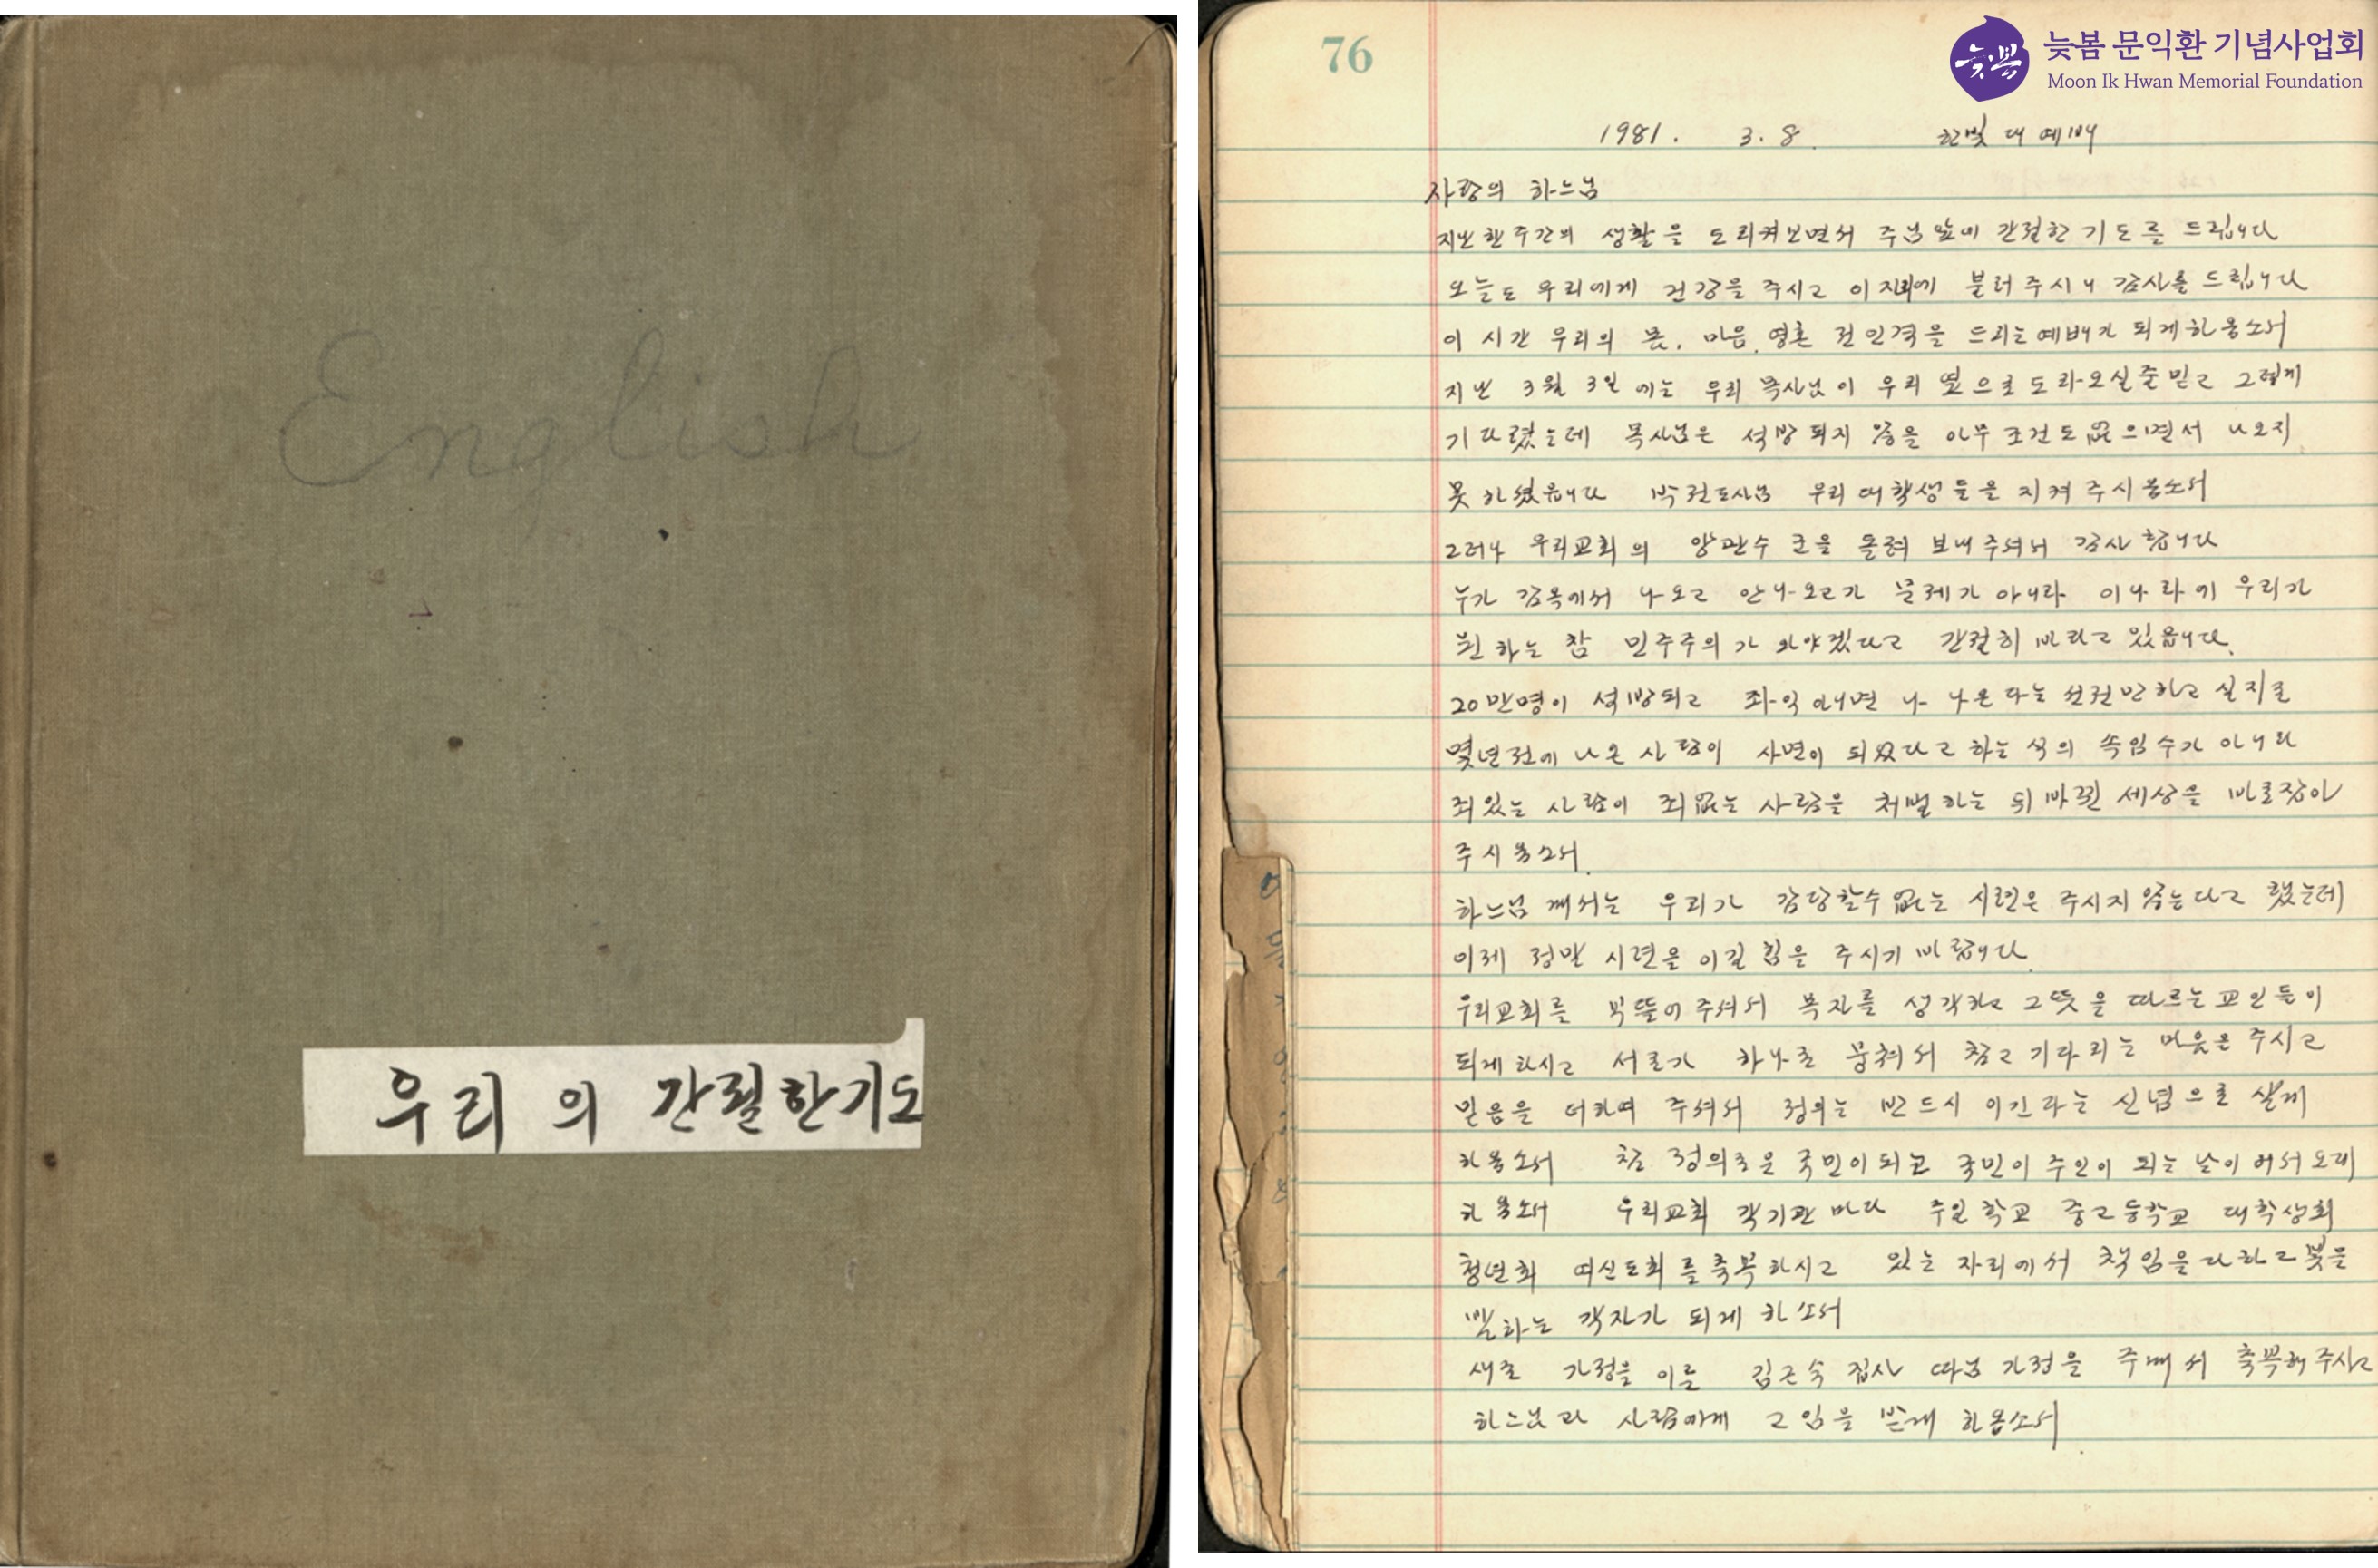 English
우리의 간절한기도
76
늦봄
늦봄 문익환 기념사업회
Moon Ik Hwan Memorial Foundation
1981. 3. 8. 한빛 대예배
사랑의 하느님
지난 한 주간의 생활을 도리켜보면서 주님앞에 간절한 기도를 드립니다
오늘도 우리에게 건강을 주시고 이 자리에 불러주시니 감사를 드립니다
이 시간 우리의 몸, 마음, 영혼 전인격을 드리는예배가 되게하옵소서
지난 3월 3일에는 우리 목사님이 우리 옆으로 도라오실줄믿고 그렇게
기다렸는데 목사님은 석방되지 않을 아무 조건도없으면서 나오지
못하셨읍니다 박전도사님 우리 대학생들을 지켜주시옵소서
그러나 우리교회의 양관수 군을 돌려 보내주셔서 감사합니다
누가 감옥에서 나오고 안나오고가 문제가 아니라 이나라에 우리가
원하는 참 민주주의가 와야겠다고 간절히 바라고 있읍니다.
20만명이 석방되고 좌익아니면 다 나온다는 선전만하고 실지로
몇년전에 나온 사람이 사면이 되었다고 하는 식의 속임수가 아니라
죄있는 사람이 죄없는 사람을 처벌하는 뒤바뀐 세상을 바로잡아
주시옵소서.
하느님께서는 우리가 감당할수 없는 시련은 주시지 않는다고 했는데
이제 정말 시련을 이길 힘을 주시기 바랍니다.
우리교회를 붙들어주셔서 목자를 생각하고 그뜻을 따르는교인들이
되게하시고 서로가 하나로 뭉쳐서 참고 기다리는 마음은 주시고
믿음을 더하여 주셔서 정의는 반드시 이긴다는 신념으로 살게
하옵소서 참 정의로운 국민이되고 국민이 주인이 되는 날이 어서 오게
하옵소서 우리교회 각기관마다 주일학교 중고등학교 대학생회
청년회 여신도회를축복하시고 있는 자리에서 책임을다하고빛을
발하는 각자가 되게 하소서
새로 가정을 이룬 김근숙 집사 따님 가정을 주께서 축복해주시고
하느님과 사람에게 고임을 받게 하옵소서